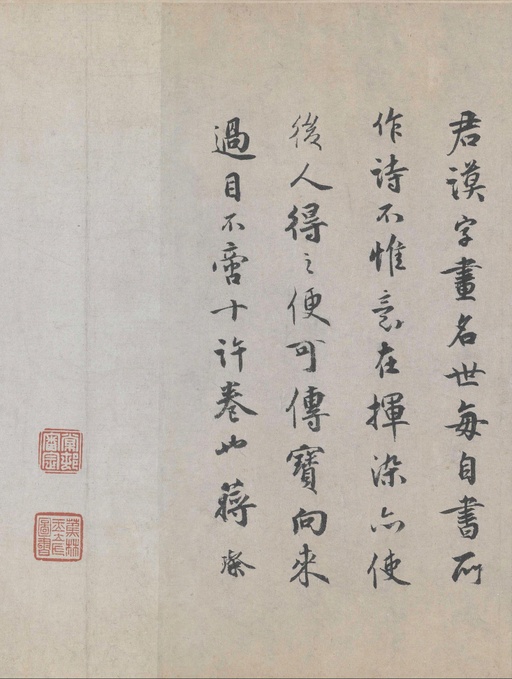 君謨字畫名世每自書所
作詩不惟意在揮染亦使
後人得之便可傳寶向來
過目不啻十許卷也蔣璨
蕉林
玉立氏
圖書